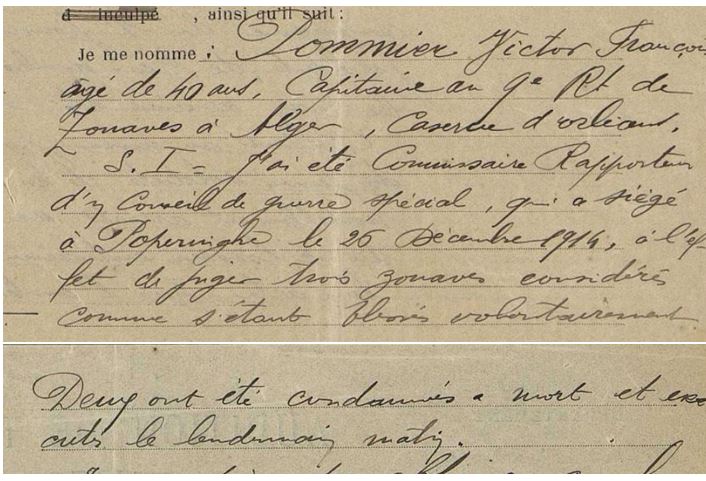 d'inculpé , ainsi qu'il suit :
Je me nomme : Pommier Victor François
âgé de 40 ans, Capitaine au 9e Rt de
Zouaves à Alger, Caserne d'orléans.
S. I = J'ai été Commissaire Rapporteur
d'un Conseil de guerre spécial, qui a siégé
à Poperinghe le 26 Décembre 1914, à l'ef-
fet de juger trois zouaves considérés
comme s'étant blessés volontairement
Deux ont été condamnés a mort et exé
cutés le lendemain matin.